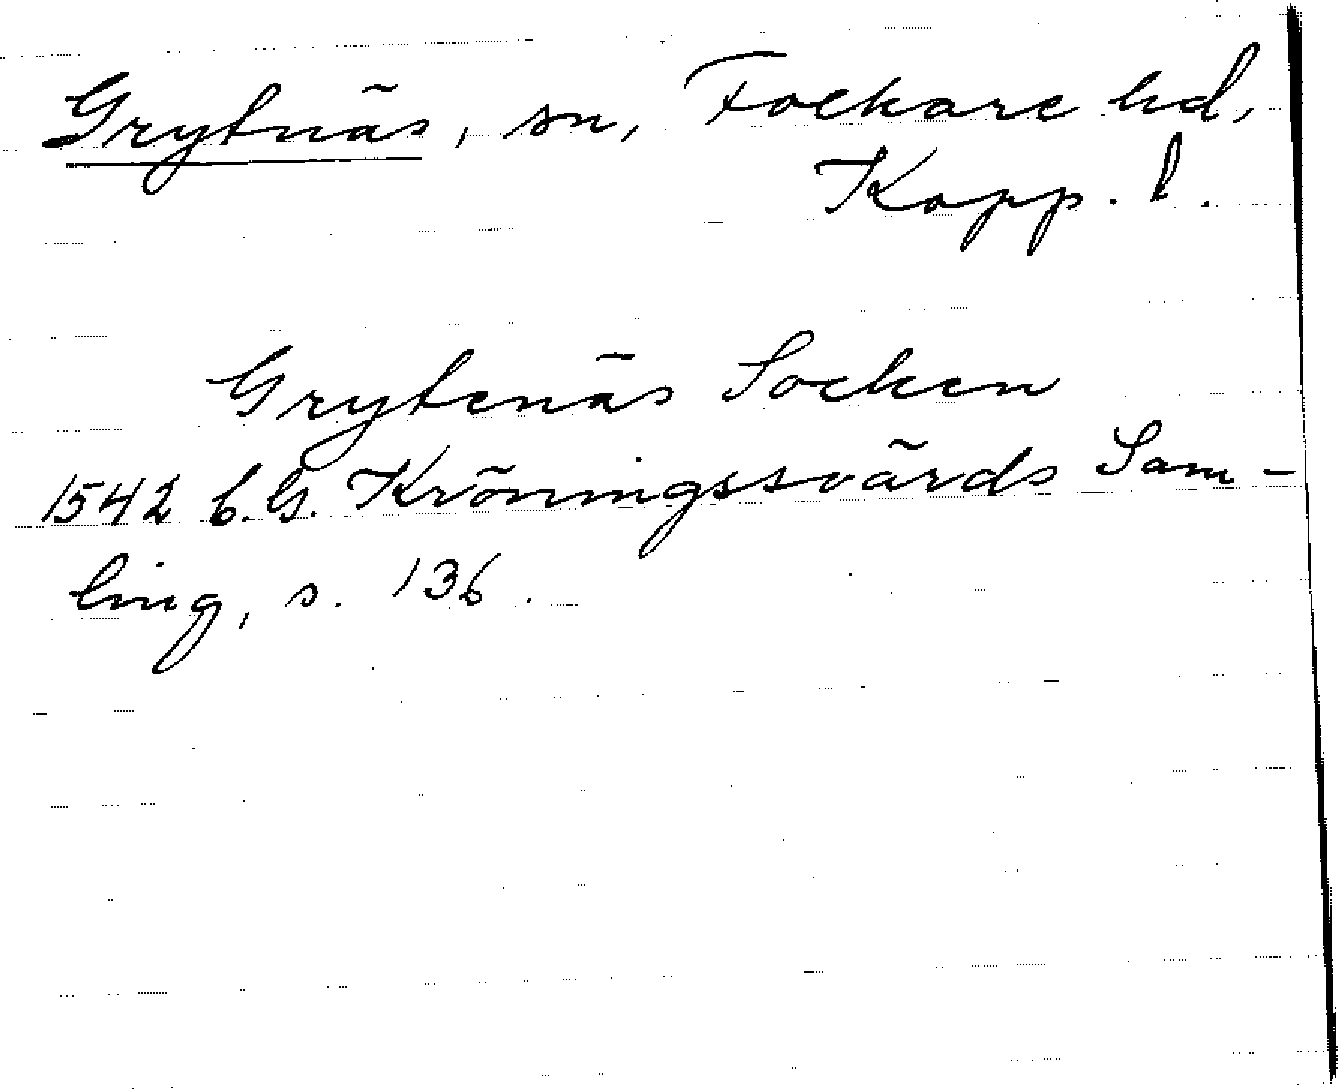 Grytnäs, sn, Folkare hd,
Kopp. l.
Grytenäs Socken
1542 C.G. Kröningssvärds Sam-
ling, s. 136.